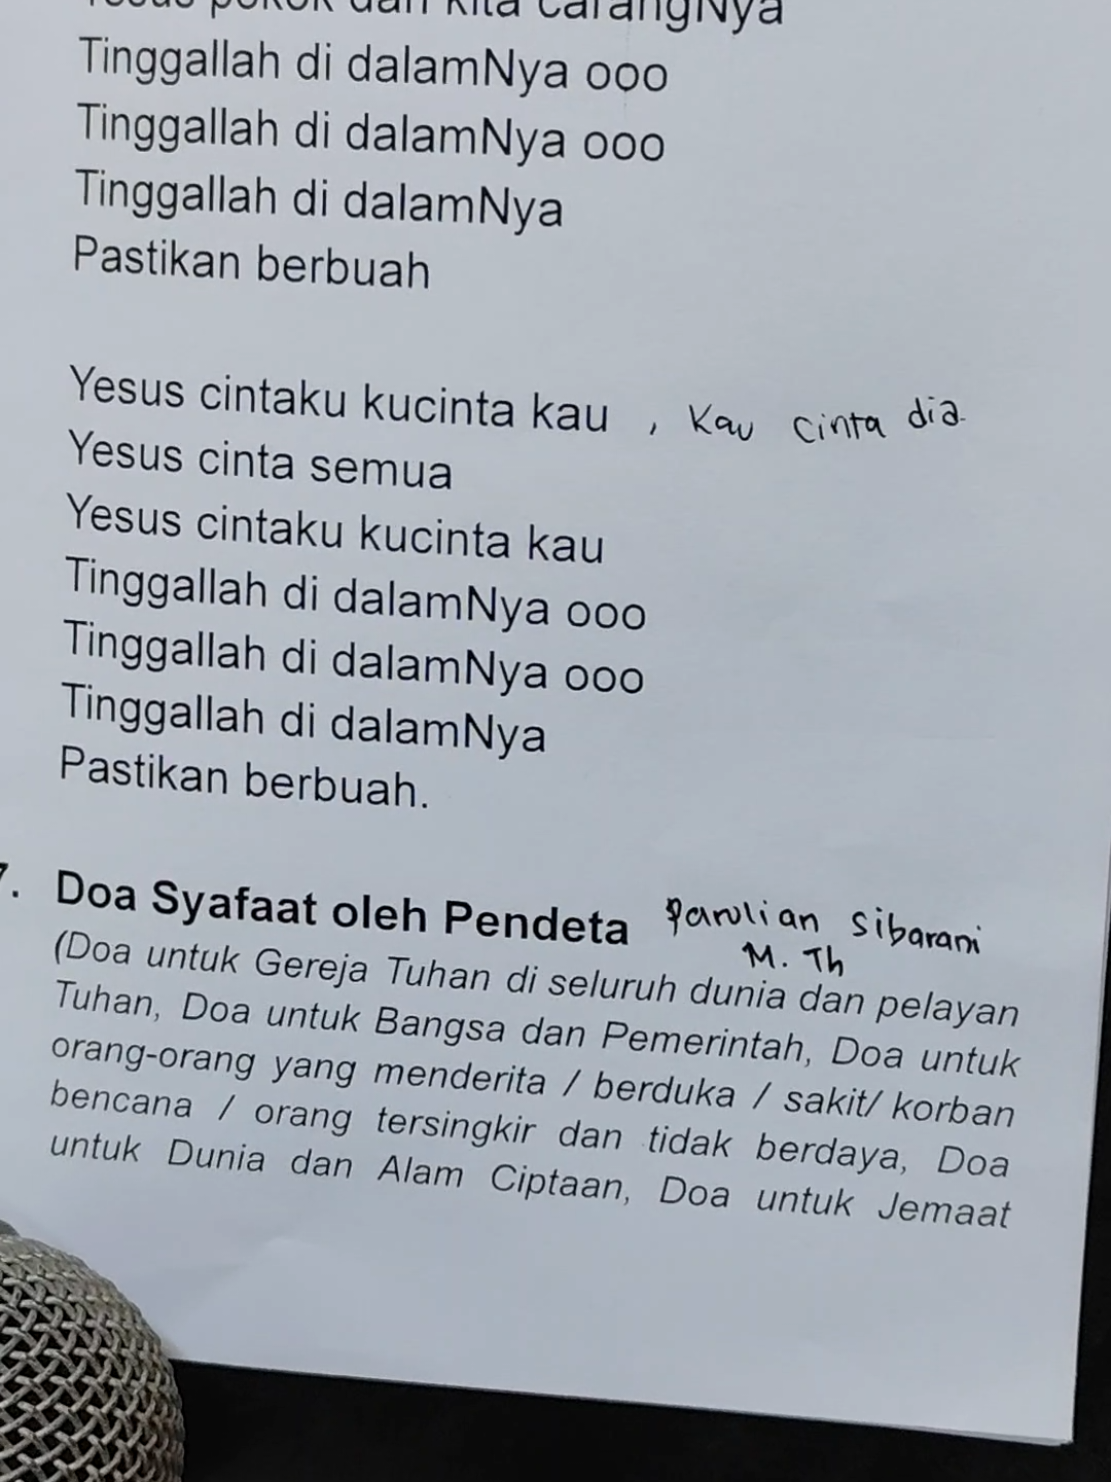 Yesus pokok dan kita carangNya
Tinggallah di dalamNya ooo
Tinggallah di dalamNya ooo
Tinggallah di dalamNya
Pastikan berbuah
Yesus cintaku kucinta kau , Kau cinta dia.
Yesus cinta semua
Yesus cintaku kucinta kau
Tinggallah di dalamNya ooo
Tinggallah di dalamNya ooo
Tinggallah di dalamNya
Pastikan berbuah.
7. Doa Syafaat oleh Pendeta Parulian Sibarani
M. Th
(Doa untuk Gereja Tuhan di seluruh dunia dan pelayan
Tuhan, Doa untuk Bangsa dan Pemerintah, Doa untuk
orang-orang yang menderita / berduka / sakit/ korban
bencana / orang tersingkir dan tidak berdaya, Doa
untuk Dunia dan Alam Ciptaan, Doa untuk Jemaat